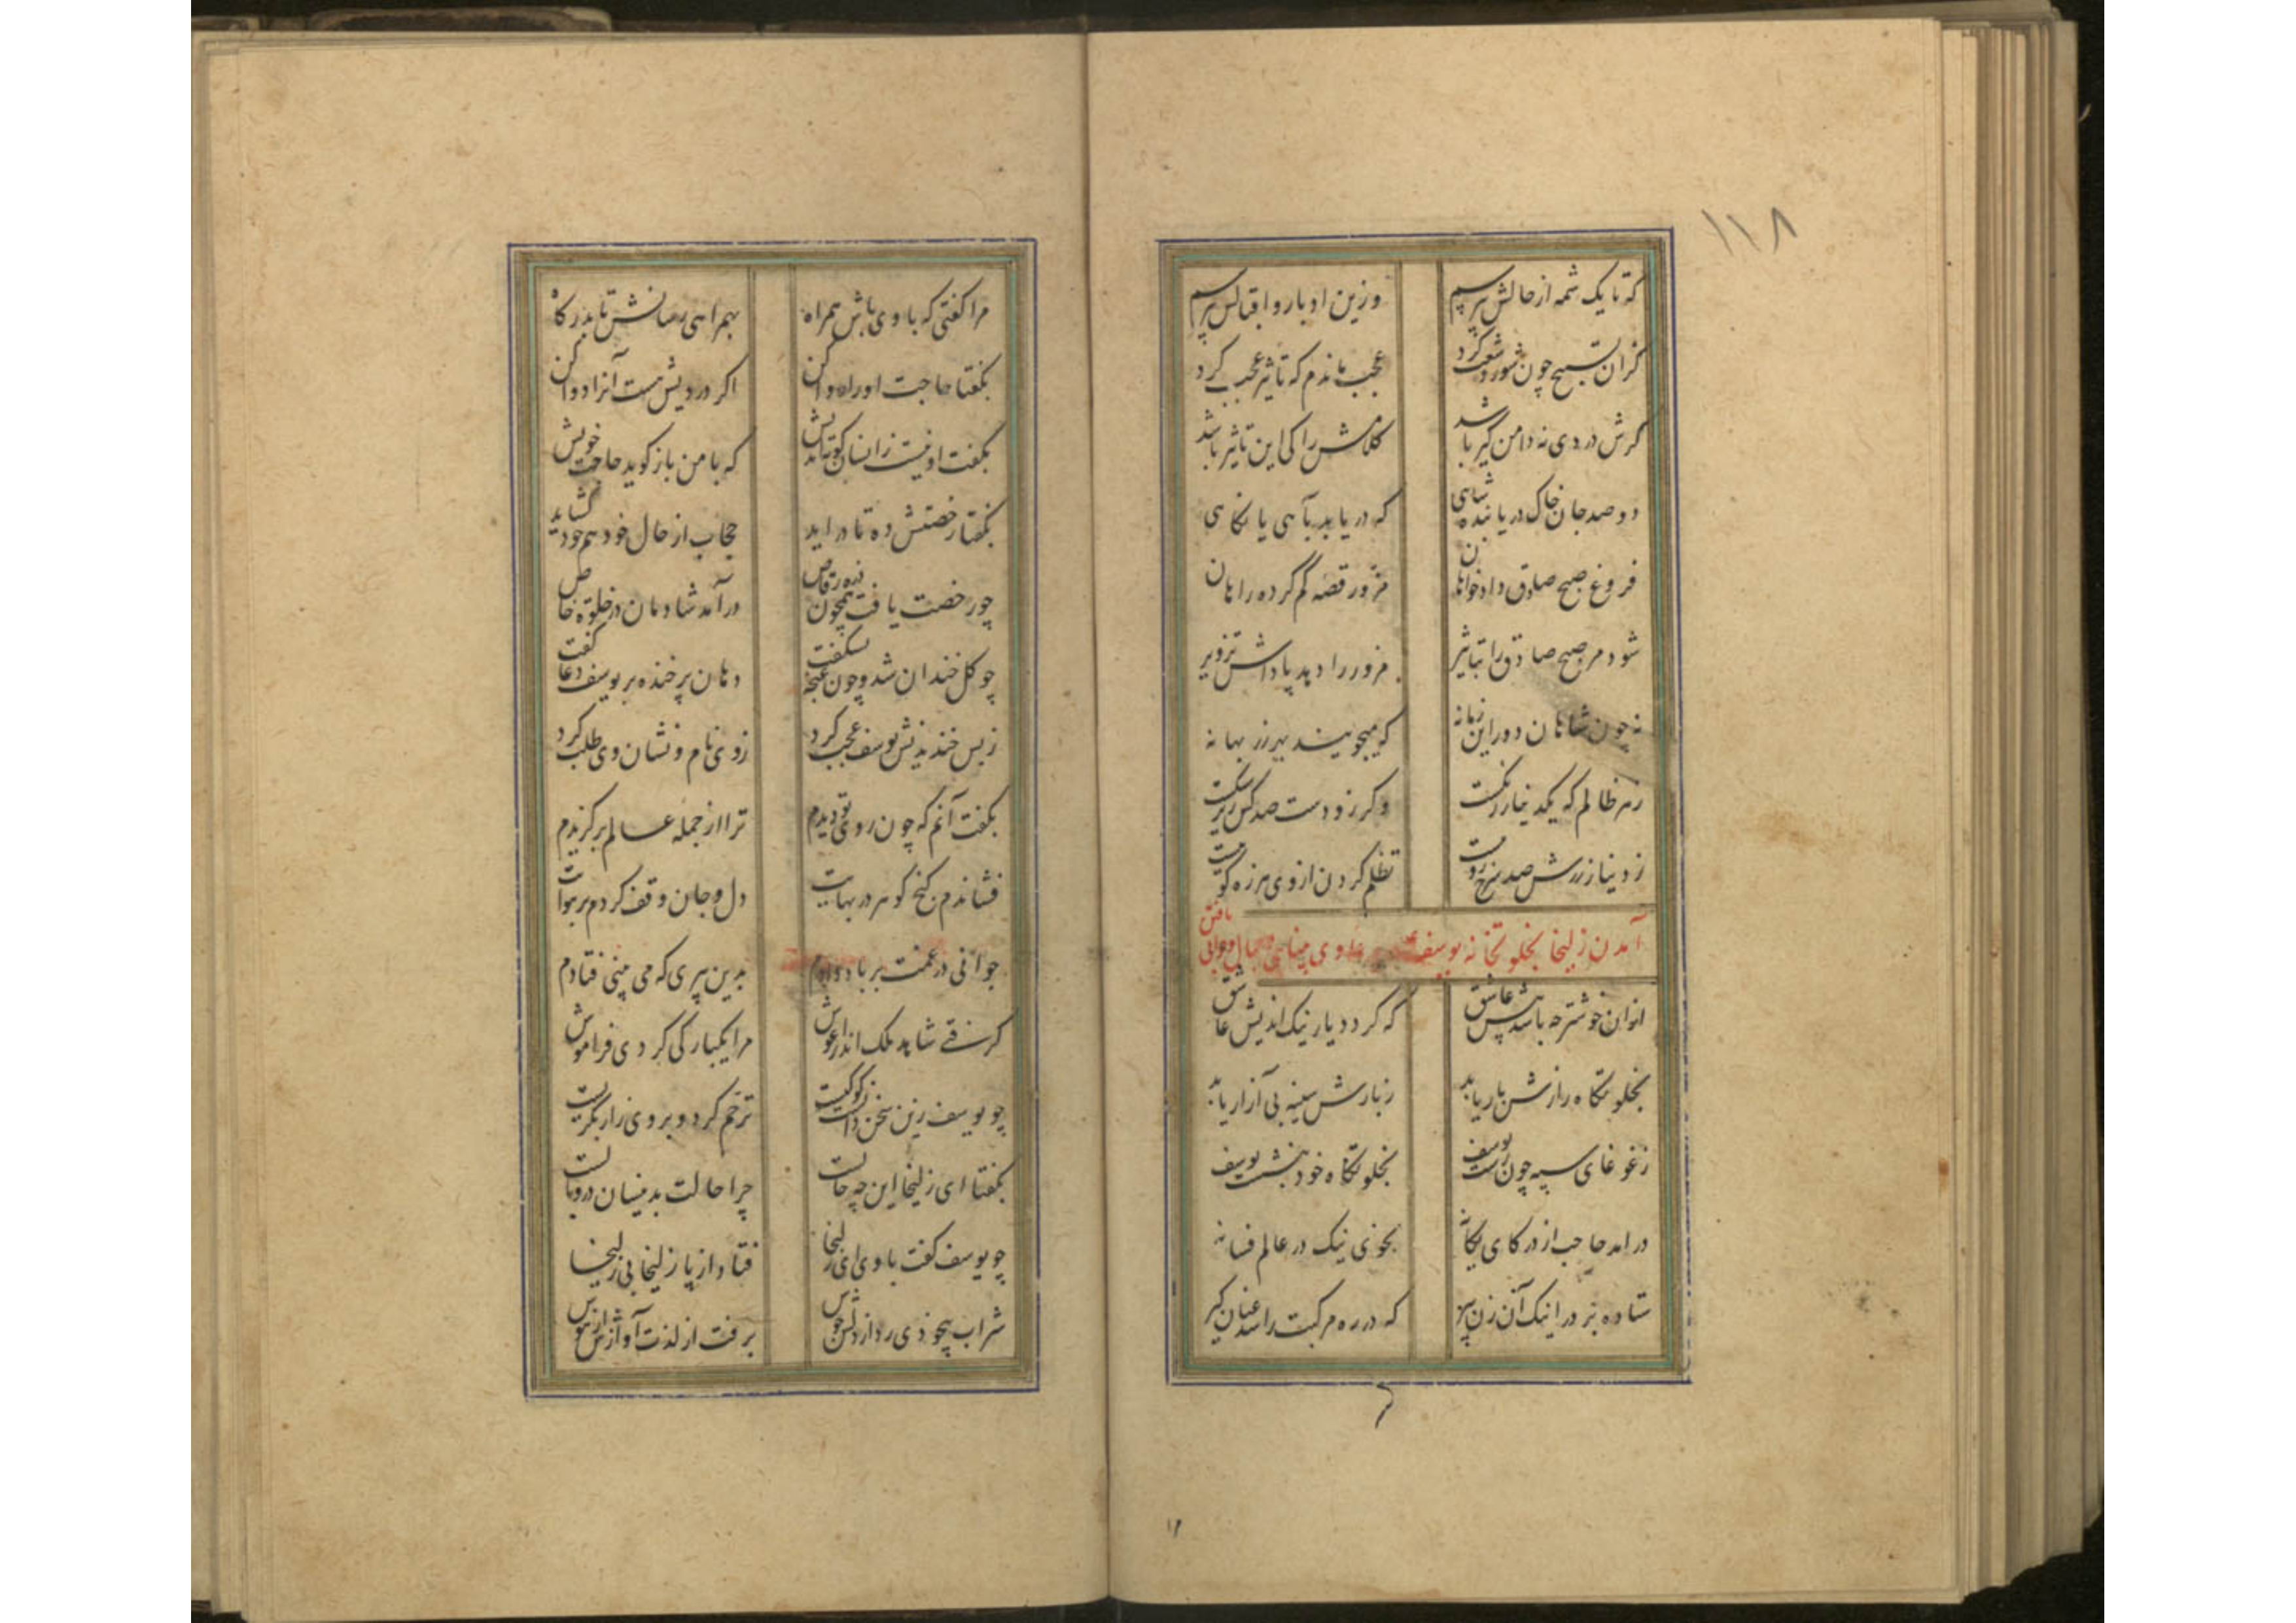 ۱۱۸
که تا یک شمه از حالش بپرسم وزین ادبار و اقبالش بپرسم
کزان تسبیح چون شورد شعب کرد عجب ماندم که تاثیر عجب کرد
کرش دردی نه دامن گیر باشد کلامش را کی این تاثیر باشد
دو صد جان خاک دریابنده شاهی که دریابد بآهی یا نکاهی
فروغ صبح صادق دادخواهان مزور قصه گم کرده راهان
شود مر صبح صادق را تباشیر مزور را دهد پاداش تزویر
نه چون شاهان دور این زمانه که میجویند بهر زر بهانه
زهر ظالم که یکدینار رانکشت وکر زو دست صد کس ریز
ز دینار زرش صد سرخ روست تظلم کردن از وی هرزه کویست
آمدن زلیخا بخلوتخانه یوسف و بینایی و جمال و جوانی یافتن
ازان خوشتر چه باشد پیش عاشق که کردد یار نیک اندیش عاشق
بخلوتگاه رازش بار یابد ز بارش سینه بی آزار یابد
ز غوغای سپه چون رست یوسف بخلوتگاه خود بنشست یوسف
درامد حاجب از در کای یکانه بخوی نیک در عالم فسانه
ستاده بر در اینک آن زن پیر که در ره مرکبت را شد عنان گیر
مرا کفتی که با وی باش همراه بهمراهی رسانش تا بدرکاه
بکفتا حاجت او را روا کن اکر دردیش هست آنرا دوا کن
بکفت او نیست زانسان کوته اندیش که با من باز کوید حاجت خویش
بکفتا رخصتش ده تا دراید حجاب از حال خود هم خود کشاید
چو رخصت یافت همچون ذره رقاص درآمد شادمان در خلوة خاص
چو کل خندان شد و چون غنچه بشکفت دهان پر خنده بر یوسف دعا کفت
ز بس خندیدنش یوسف عجب کرد ز وی نام و نشان وی طلب کرد
بکفت آنم که چون روی تو دیدم ترا از جمله عالم برکزیدم
فشاندم کنج کوهر در بهایت دل و جان وقف کردم بر هوایت
جوانی در غمت بر باد دادم بدین پیری که می بینی فتادم
کرفتی شاهد ملک اندر اغوش مرا یکبارکی کردی فراموش
چو یوسف زین سخن دانست کو کیست ترحم کرد و بر وی زار بکریست
بکفتا ای زلیخا این چه حالست چرا حالت بدینسان در وبالست
چو یوسف کفت با وی ای زلیخا فتاد از پا زلیخا بی زلیخا
شراب بیخودی زد از دلش جوش برفت از لذت آوازش از هوش